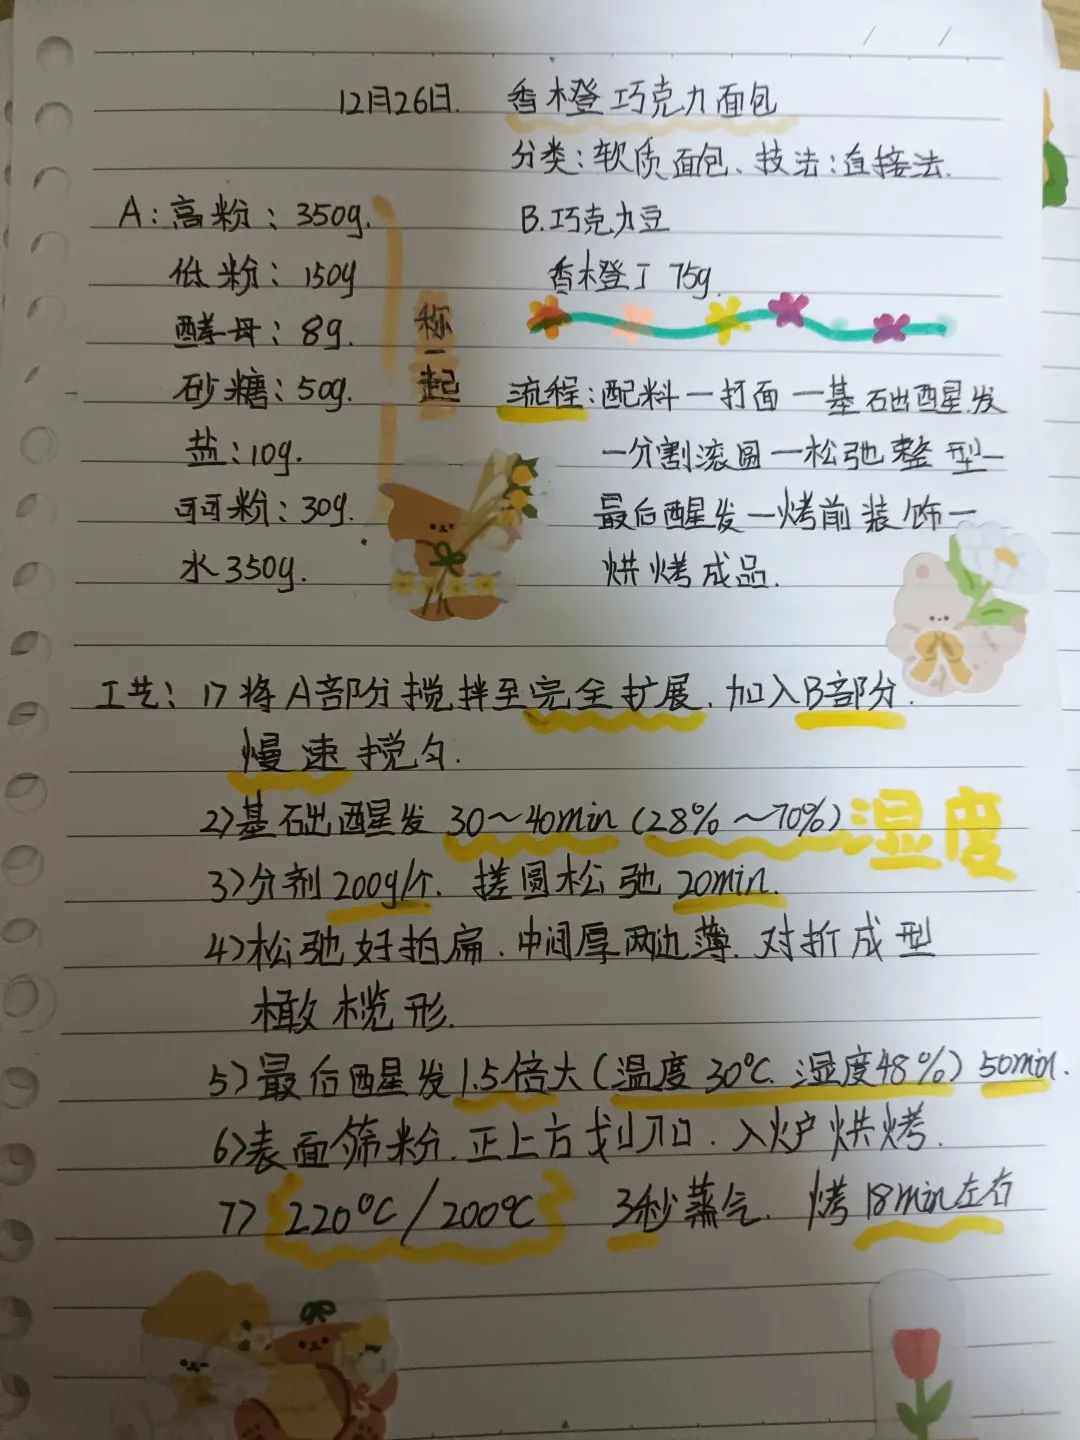 12月26日. 香橙巧克力面包
分类:软质面包、技法:直接法.
A:高粉:350g.
低粉:150g
酵母:8g.
砂糖:50g.
盐:10g.
可可粉:30g.
水350g.
称一起
B.巧克力豆
香橙丁 75g.
流程:配料—打面—基础醒发
—分割滚圆—松弛整型—
最后醒发—烤前装饰—
烘烤成品.
工艺:1)将A部分搅拌至完全扩展.加入B部分.
慢速搅匀.
2)基础醒发30~40min(28%~70%)湿度
3)分剂200g/个.搓圆松弛20min.
4)松弛好拍扁.中间厚两边薄.对折成型
橄榄形.
5)最后醒发1.5倍大(温度30℃.湿度48%)50min.
6)表面筛粉.正上方划刀口.入炉烘烤.
7)220℃/200℃ 3秒蒸气. 烤18min左右